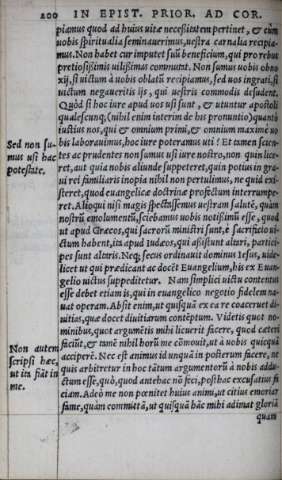 200 IN EPIST. PRIOR. AD COR.
piamus quod ad huius vitæ necessitatem pertinet, & cùm
uobis spiritualia seminauerimus, uestra carnalia recipia-
mus. Non habet cur imputet suũ beneficium, qui pro rebus
pretiosissimis uilissimas commutat. Non sumus uobis obno
xij, si uictum à uobis oblatũ recipiamus, sed uos ingrati, si
uictum negaueritis ijs, qui uestris commodis desudent.
Quòd si hoc iure apud uos usi sunt, & utuntur apostoli
qualescunq, (nihil enim interim de his pronuntio) quantò
iustius nos, qui & omnium primi, & omnium maximè uo
bis laborauimus, hoc iure poteramus uti? Et tamen scien-
Sed non su-
mus usi hac
potestate.
tes ac prudentes non sumus usi iure nostro, non quin lice-
ret, aut quia nobis aliunde suppeteret, quin potius in gra-
ui rei familiaris inopia nihil non pertulimus, ne quid exi-
steret, quod euangelicæ doctrinæ profectum interrumpe-
ret. Alioqui nisi magis spectassemus uestram salutē, quàm
nostrũ emolumentũ, sciebamus uobis notissimũ esse, quod
ut apud Græcos, qui sacrorũ ministri sunt, è sacrificio ui-
ctum habent, ita apud Iudæos, qui assistunt altari, partici-
pes sunt altaris. Neq; secus ordinauit dominus Iesus, uide-
licet ut qui prædicant ac docēt Euangelium, his ex Euan-
gelio uictus suppeditetur. Nam simplici uictu contentus
esse debet etiam is, qui in euangelico negotio fidelem na-
uat operam. Absit enim, ut quisquã ex ea re coaceruet di-
uitias, quæ docet diuitiarum contēptum. Videtis quot no-
minibus, quot argumētis mihi licuerit facere, quod cæteri
Non autem
scripsi hæc,
ut ita fiãt in
me.
faciũt, & tamē nihil horũ me cōmouit, ut à uobis quicquã
acciperē. Nec est animus id unquã in posterum facere, ne
quis arbitretur in hoc tãtum argumentorũ à nobis addu-
ctum esse, quò, quod antehac nō feci, posthac excusatius fa
ciam. Adeò me non pœnitet huius animi, ut citius emoriar
fame, quàm committã, ut quisquã hãc mihi adimat gloriã
quam